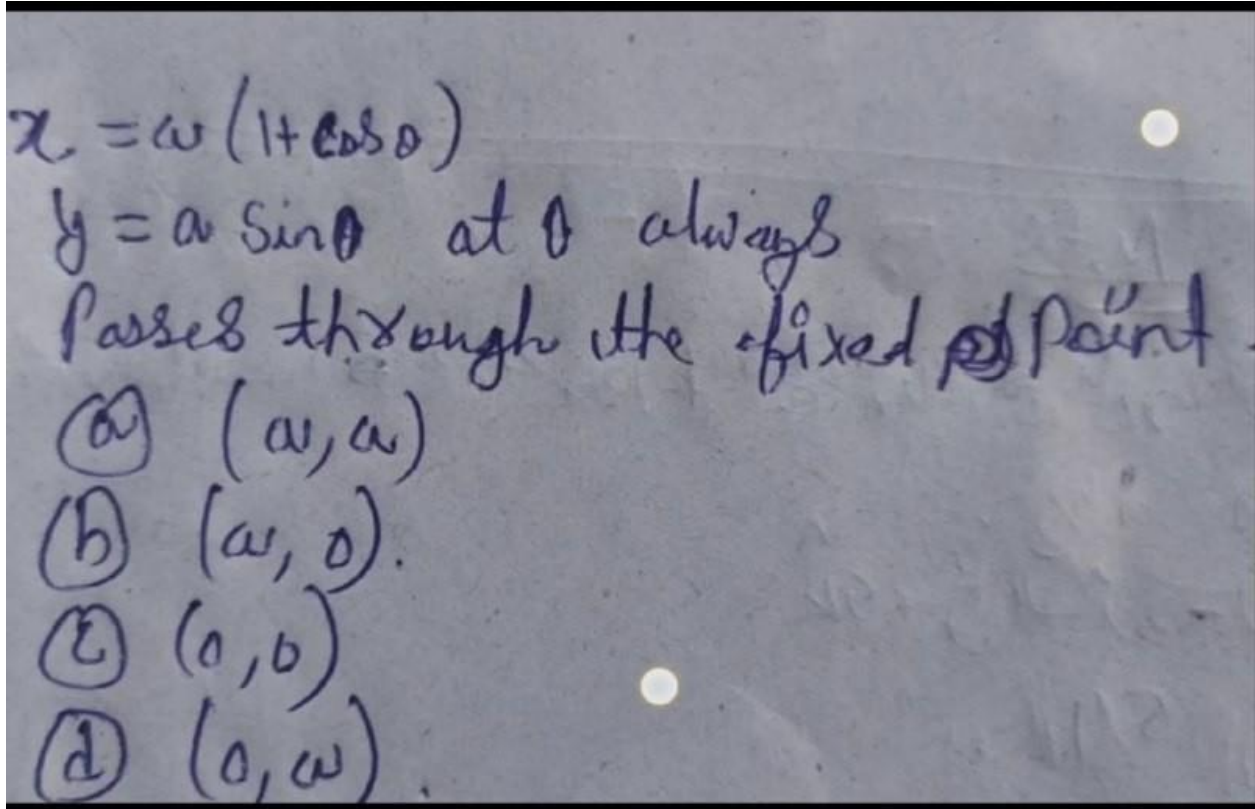 x = a (1+ cos θ)
y = a Sin θ at θ always
Passes through the fixed Point.
(a) (a, a)
(b) (a, 0).
(c) (0, 0)
(d) (0, a).